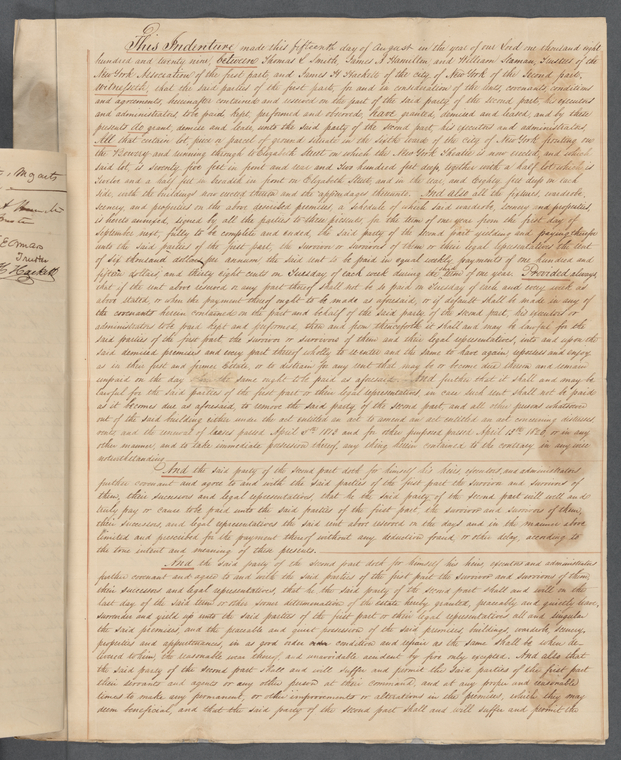 This Indenture made this fifteenth day of August in the year of our Lord one thousand eight
hundred and twenty nine, between Thomas L Smith, James A Hamilton, and William Seaman, Trustees of the
New York Association of the first part, and James H Hackett of the city of New York of the second part,
witnesseth, that the said parties of the first part, for and in consideration of the rents, covenants, conditions
and agreements, hereinafter contained and reserved on the part of the said party of the second part, his executors
and administrators to be paid, kept, performed and observed, have granted, demised and leased, and by these
presents do grant, demise and lease, unto the said party of the second part, his executors and administrators,
All that certain lot piece or parcel of ground situate in the sixth ward of the city of New York fronting on
the Bowery and running through to Elizabeth Street on which the New York Theatre is now erected, and which
said lot, is seventy five feet in front and rear and two hundred feet deep together with a half lot which is
twelve and a half feet in breadth in front on Elizabeth Street, and in the rear, and eighty feet deep on each
side, with the buildings now erected thereon and the appurtenances thereunto. And also all the fixtures, wardrobe,
scenery, and properties on the above described premises, a schedule of which said wardrobe, scenery, and properties,
is hereto annexed, signed by all the parties to these presents, for the term of one year from the first day of
September next, fully to be complete and ended, the said party of the second part yielding and paying therefor
unto the said parties of the first part, the Survivor or Survivors of them or their legal representatives the rent
of six thousand dollars per annum, the said rent to be paid in equal weekly payments of one hundred and
fifteen dollars and thirty eight cents on Tuesday of each week during the term of one year. Provided always,
that if the rent above reserved or any part thereof shall not be so paid on Tuesday of each and every week as
above stated, or when the payment thereof ought to be made as aforesaid, or if default shall be made in any of
the covenants herein contained on the part and behalf of the said party of the second part, his executors or
administrators to be paid kept and performed, then and from thenceforth it shall and may be lawful for the
said parties of the first part the survivor or survivors of them and their legal representatives, into and upon the
said demised premises and every part thereof wholly to reenter and the same to have again, repossess and enjoy
as in their first and former Estate, or to distrain for any rent that may be or become due thereon and remain
unpaid on the day when the same ought to be paid as aforesaid. And further that it shall and may be
lawful for the said parties of the first part or their legal representatives in case such rent shall not be paid
as it becomes due as aforesaid, to remove the said party of the second part, and all other persons whatsoever
out of the said building either under the act entitled an act to amend an act entitled an act concerning distresses
rents and the renewal of leases passed April 5th 1813 and for other purposes passed April 13th 1820, or in any
other manner, and to take immediate possession thereof, any thing herein contained to the contrary in any wise
notwithstanding.
And the said party of the second part doth for himself his heirs executors, and administrators
further covenant and agree to and with the said parties of the first part the survivor and survivors of
them, their successors and legal representatives, that he the said party of the second part will well and
truly pay or cause to be paid unto the said parties of the first part, the survivor and survivors of them,
their successors, and legal representatives the said rent above reserved on the days and in the manner above
limited and prescribed for the payment thereof without any deduction fraud or other delay, according to
the true intent and meaning of these presents.
And the said party of the second part doth for himself his heirs, executors and administrators
further covenant and agree to and with the said parties of the first part the survivor and survivors of them,
their successors and legal representatives, that he the said party of the second part shall and will on the
last day of the said term or other sooner determination of the estate hereby granted, peaceably and quietly leave,
surrender and yield up unto the said parties of the first part or their legal representatives all and singular
the said premises, and the peaceable and quiet possession of the said premises, buildings, wardrobe, scenery,
properties and appurtenances, in as good order condition and repair as the same shall be when de-
livered to him the reasonable wear thereof and unavoidable accident by fire only excepted. And also that
the said party of the second part shall and will suffer and permit the said parties of the first part
their servants and agents or any other person at their command, and at any proper and reasonable
times to make any permanent, or other improvements or alterations in the premises, which they may
deem beneficial, and that the said party of the second part shall and will suffer and permit the
Seaman
Trustees
H Hackett